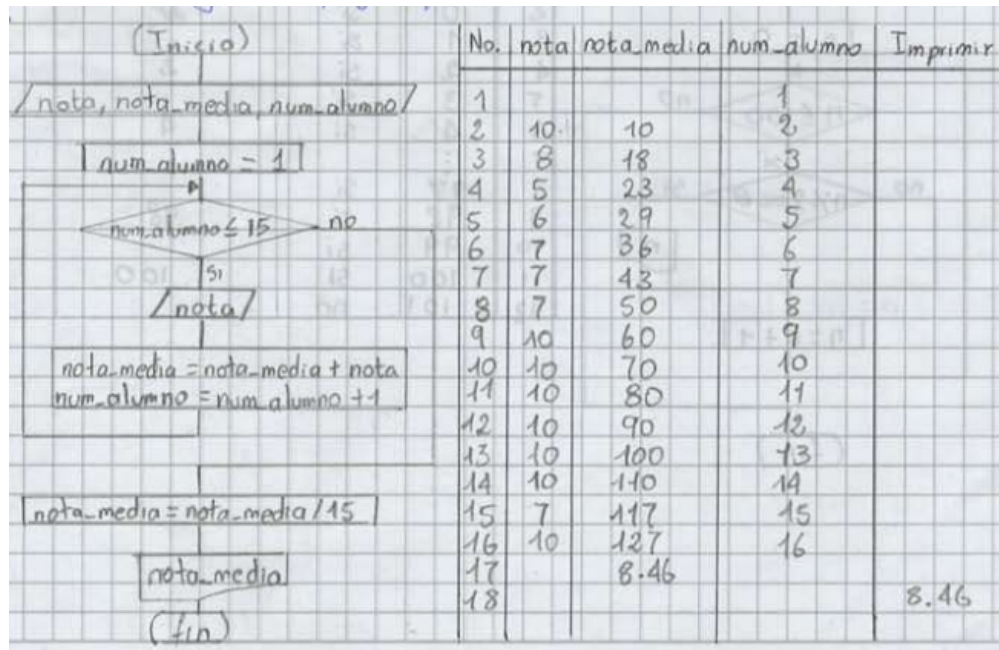 (Inicio)
/nota, nota_media, num_alumno/
num_alumno = 1
num_alumno ≤ 15 no
si
/nota/
nota_media = nota_media + nota
num_alumno = num_alumno + 1
nota_media = nota_media / 15
nota_media
(fin)
No. nota nota_media num_alumno Imprimir
1 1
2 10 10 2
3 8 18 3
4 5 23 4
5 6 29 5
6 7 36 6
7 7 43 7
8 7 50 8
9 10 60 9
10 10 70 10
11 10 80 11
12 10 90 12
13 10 100 13
14 10 110 14
15 7 117 15
16 10 127 16
17 8.46
18 8.46